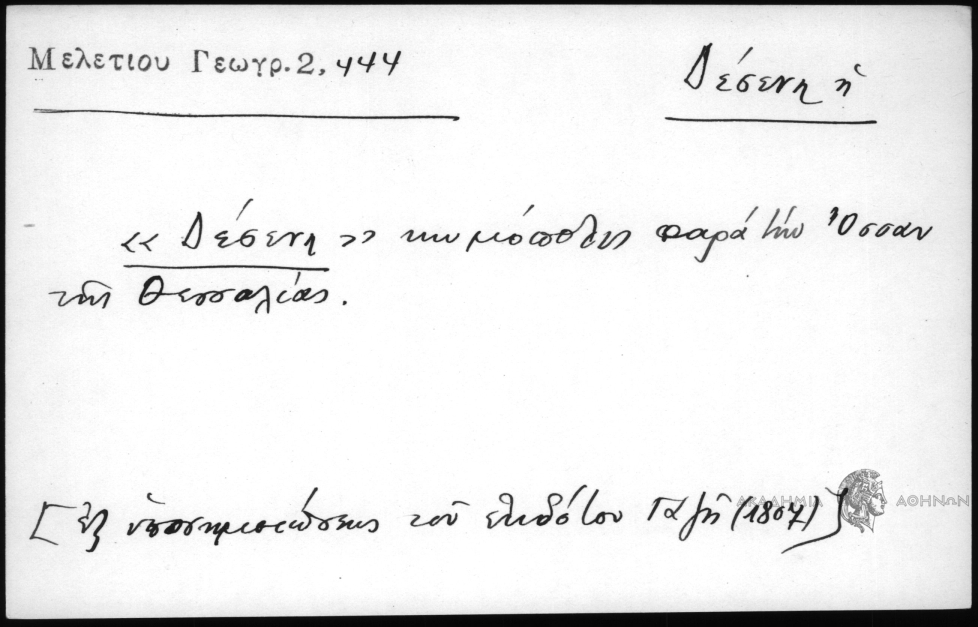 Μελετιου Γεωγρ. 2, 444
Δέσενη ἡ
«Δέσενη» κωμόπολις παρά τήν Ὄσσαν
τῆς Θεσσαλίας.
[ἐξ ὑποσημειώσεως τοῦ ἐκδότου Γαζῆ (1807)]
ΑΚΑΔΗΜΙΑ ΑΘΗΝΩΝ